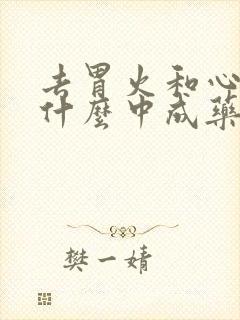 去胃火和心
什麼中成藥
樊一婧